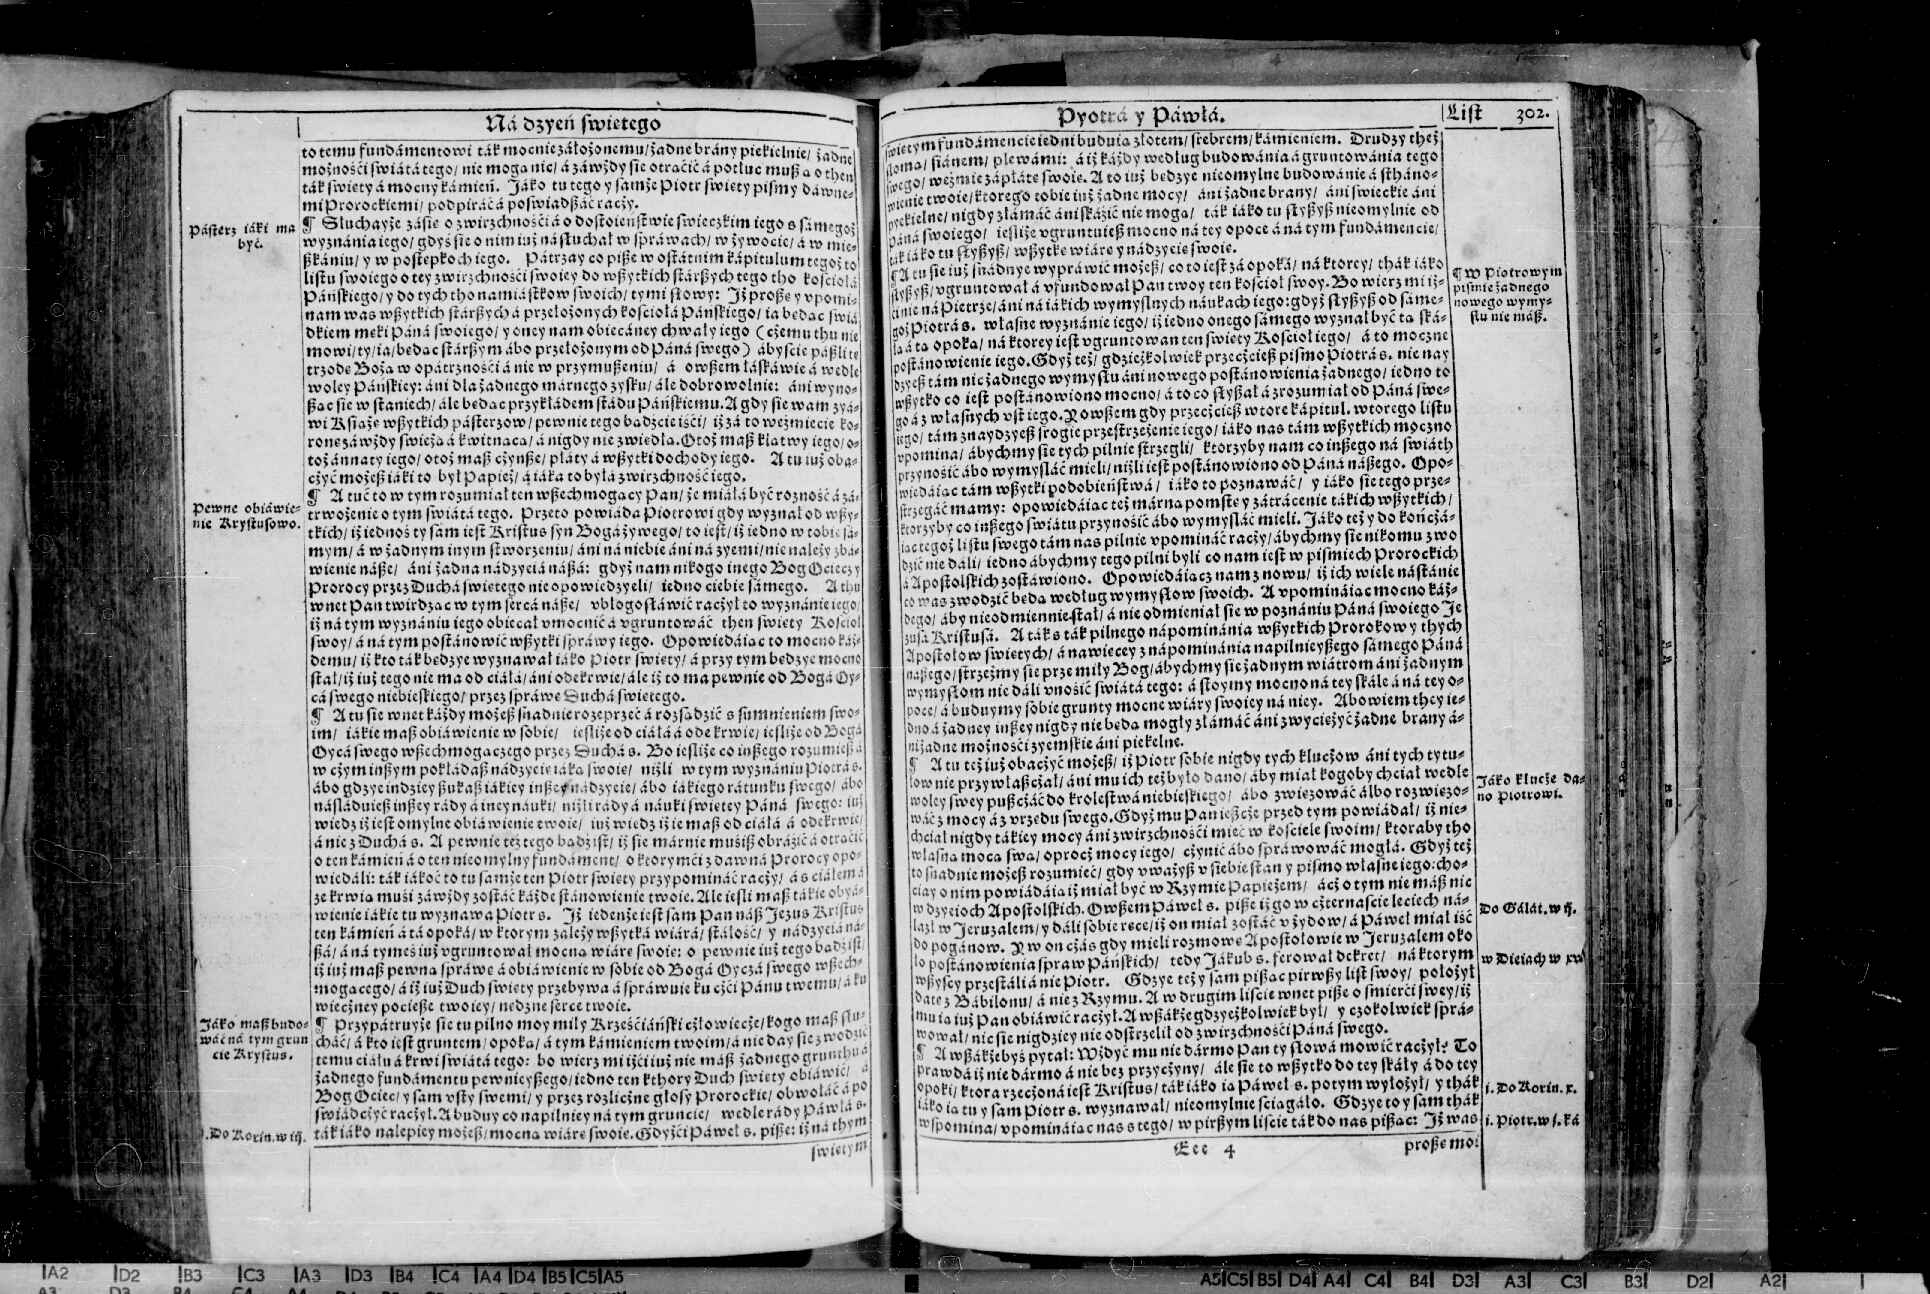 Ná dzyeń swietego
to temu fundámentowi ták mocnie záłożonemu/ żadne brány piekielnie/ żadne
możnośći swiátá tego/ nie mogą nic/ á záwżdy sie otrąćić á potłuc muszą o then
ták swiety á mocny kámień. Jáko tu tego y samże Piotr swiety pismy dáwne-
mi Prorockiemi/ podpiráć á poswiadszáć raczy.
Pásterz iáki ma
być.
¶ Słuchayże zásie o zwirzchnośći á o dostoieństwie swieczkim iego s sámegoż
wyznánia iego/ gdyż sie o nim iuż násłuchał w spráwach/ w żywocie/ á w mie-
szkániu/ y w postepkoch iego. Pátrzay co pisze w ostátnim kápitulum tegoż to
listu swoiego o tey zwirzchnośći swoiey do wszytkich stárszych tego tho kośćiołá
Páńskiego/ y do tych tho namiástkow swoich/ tymi słowy: Iż prosze y vpomi-
nam was wszytkich stárszych á przełożonych kośćiołá Páńskiego/ ia bedąc swiá
dkiem meki Páná swoiego/ y oney nam obiecáney chwały iego (czemu thu nie
mowi/ ty/ ia/ bedąc stárszym ábo przełożonym od Páná swego) ábyśćie pászli tę
trzode Bożą w opátrznośći á nie w przymuszeniu/ á owszem łáskáwie á wedle
woley Páńskiey: áni dla żadnego márnego zysku/ ále dobrowolnie: áni wyno-
sząc sie w stániech/ ále bedąc przykłádem stádu Páńskiemu. A gdy sie wam zyá-
wi Książe wszytkich pásterzow/ pewnie tego bądźćie iśći/ iż zá to weźmiećie ko-
rone záwżdy swieżą á kwitnącą/ á nigdy nie zwiedłą. Otoż masz klątwy iego/ o-
toż ánnaty iego/ otoż masz czynsze/ płáty á wszytki dochody iego. A tu iuż obá-
czyć możesz iáki to był Papież/ á iáka to była zwirzchność iego.
Pewne obiáwie-
nie Krystusowo.
¶ A tuć to w tym rozumiał ten wszechmogący Pan/ że miáłá być rozność á zá-
trwożenie o tym swiátá tego. Przeto powiáda Piotrowi gdy wyznał od wszy-
tkich/ iż iednoś ty sam iest Kristus syn Bogá żywego/ to iest/ iż iedno w tobie sá-
mym/ á w żadnym inym stworzeniu/ áni ná niebie áni ná zyemi/ nie należy zbá-
wienie násze/ áni żadna nádzyeiá nászá: gdyż nam nikogo inego Bog Oćiec z y
Prorocy przez Duchá swietego nie opowiedzyeli/ iedno ciebie sámego. A thu
wnet Pan twirdząc w tym sercá násze/ vbłogosłáwić raczył to wyznánie iego/
iż ná tym wyznániu iego obiecał vmocnić á vgruntowáć then swiety Kośćioł
swoy/ á ná tym postánowić wszytki spráwy iego. Opowiedáiąc to mocno káż-
demu/ iż kto ták bedzye wyznawał iáko Piotr swiety/ á przy tym bedzye mocno
stał/ iż iuż tego nie ma od ciáłá/ áni odekrwie/ ále iż to ma pewnie od Bogá Oy-
cá swego niebieskiego/ przez spráwe Duchá swietego.
¶ A tu sie wnet káżdy możesz snádnie rozeprzeć á rozsądzić s sumnieniem swo-
im/ iákie masz obiáwienie w sobie/ iesliże od ciáłá á ode krwie/ iesliże od Bogá
Oycá swego wszechmogączego przez Duchá s. Bo iesliże co inszego rozumiesz á
w czym inszym pokłádasz nádzyeię iáką swoię/ niżli w tym wyznániu Piotrá s.
ábo gdzye indziey szukasz iákiey inszey nádzyeie/ ábo iákiego rátunku swego/ ábo
násláduiesz inszey rády á iney náuki/ niżli rády á náuki swietey Páná swego: iuż
wiedz iż iest omylne obiáwienie twoie/ iuż wiedz iż ie masz od ciáłá á ode krwie/
á nie z Duchá s. A pewnie też tego bądź ist/ iż sie márnie musisz obrázić á otrąćić
o ten kámień á o ten nieomylny fundáment/ o ktorymći z dawná Prorocy opo-
wiedáli: ták iákoć to tu samże ten Piotr swiety przypomináć raczy/ á s ciáłem á
ze krwią musi záwżdy zostáć káżde stánowienie twoie. Ale iesli masz tákie obyá-
wienie iákie tu wyznawa Piotr s. Iż iedenże iest sam Pan nász Jezus Kristus
ten kámień á tá opoká/ w ktorym zależy wszytká wiárá/ stáłość/ y nádzyeiá ná-
szá/ á ná tymeś iuż vgruntował mocną wiáre swoię: o pewnie iuż tego bądź ist/
iż iuż masz pewną spráwe á obiáwienie w sobie od Bogá Oyczá swego wszech-
mogącego/ á iż iuż Duch swiety przebywa á spráwuie ku czći Pánu twemu/ á ku
wieczney pociesze twoiey/ nędzne serce twoie.
Jáko masz budo-
wáć ná tym grun
cie Krystus.
¶ Przypátruyże sie tu pilno moy miły Krześćiáński człowiecze/ kogo masz słu-
cháć/ á kto iest gruntem/ opoką/ á tym kámieniem twoim/ á nie day sie zwodzić
temu ciáłu á krwi swiátá tego: bo wierz mi iżći iuż nie masz żadnego grunthu á
żadnego fundámentu pewnieyszego/ iedno ten kthory Duch swiety obiáwić/ á
Bog Oćiec/ y sam vsty swemi/ y przez rozliczne głosy Prorockie/ obwołáć á po
świádczyć raczył. A buduy co napilniey ná tym gruncie/ wedle rády Páwłá s.
.Do Korin. w iij.
ták iáko nalepiey możesz/ mocną wiáre swoię. Gdyżći Páweł s. pisze: iż ná thym
swietym
Pyotrá y Páwłá.
List 302.
swietym fundámenćie iedni buduią złotem/ srebrem/ kámieniem. Drudzy theż
słomą/ siánem/ plewámi: á iż káżdy według budowánia á gruntowánia tego
swego/ weźmie zapłátę swoię. A to iuż bedzye nieomylne budowánie á stháno-
wienie twoie/ ktorego tobie iuż żadne mocy/ áni żadne brány/ áni swieckie áni
pyekielne/ nigdy złamáć áni skázić nie mogą/ ták iáko tu słyszysz nieomylnie od
Páná swoiego/ iesliże vgruntuiesz mocno ná tey opoce á ná tym fundámencie/
ták iáko tu słyszysz/ wszytkę wiáre y nádzyeię swoię.
¶ w Piotrowym
pismie żadnego
nowego wymy-
słu nie masz.
¶ A tu sie iuż snádnye wypráwić możesz/ co to iest zá opoká/ ná ktorey/ thák iáko
słyszysz/ vgruntował á vfundował Pan twoy ten kośćioł swoy. Bo wierz mi iż-
ći nie ná Pietrze/ áni ná iákich wymyślnych náukach iego: gdyż słyszysz od sáme-
goż Piotrá s. własne wyznánie iego/ iż iedno onego sámego wyznał być tą ská-
łą á tą opoką/ ná ktorey iest vgruntowan ten swiety Kośćioł iego/ á to moczne
postánowienie iego. Gdyż też/ gdzieżkolwiek przeczciesz pismo Piotrá s. nie nay
dzyesz tám nic żadnego wymysłu áni nowego postánowienia żadnego/ iedno to
wszytko co iest postánowiono mocno/ á to co słyszał á zrozumiał od Páná swe-
go á z własnych vst iego. Y owszem gdy przeczciesz wtore kápitul. wtorego listu
iego/ tám znaydzyesz srogie przestrzeżenie iego/ iáko nas tám wszytkich moczno
vpomina/ ábychmy sie tych pilnie strzegli/ ktorzyby nam co inszego ná swiáth
przynosić ábo wymyśláć mieli/ niżli iest postánowiono od Páná nászego. Opo-
wiedáiąc tám wszytki podobieństwá/ iáko to poznawáć/ y iáko sie tego prze-
strzegáć mamy: opowiedáiąc też márną pomstę y zátrácenie tákich wszytkich/
ktorzyby co inszego swiátu przynosić ábo wymyśláć mieli. Jáko też y do kończá-
iąc tegoż listu swego tám nas pilnie vpomináć raczy/ ábychmy sie nikomu zwo
dzić nie dáli/ iedno ábychmy tego pilni byli co nam iest w pismiech Prorockich
á Apostolskich zostáwiono. Opowiedáiącz nam z nowu/ iż ich wiele nástánie
co was zwodzić bedą według wymysłow swoich. A vpomináiąc mocno káż-
dego/ áby nieodmiennie stał/ á nie odmieniał sie w poznániu Páná swoiego Je
zusá Kristusá. A ták s ták pilnego nápominánia wszytkich Prorokow y thych
Apostołow swietych/ á nawiecey z nápominánia napilnieyszego sámego Páná
nászego/ strzeżmy sie prze miły Bog/ ábychmy sie żadnym wiátrom áni żadnym
wymysłom nie dáli vnosić swiátá tego: á stoymy mocno ná tey skále á ná tey o-
poce/ á buduymy sobie grunty mocne wiáry swoiey ná niey. Abowiem they ie-
dno á żadney inszey nigdy nie bedą mogły złamáć áni zwyciężyć żadne brány á-
ni żadne możnośći zyemskie áni piekelne.
Jáko klucze dá-
no Piotrowi.
¶ A tu też iuż obaczyć możesz/ iż Piotr sobie nigdy tych kluczow áni tych tytu-
łow nie przywłaszczał/ áni mu ich też było dano/ áby miał kogoby chciał wedle
woley swey puszczáć do krolestwá niebieskiego/ ábo zwięzowáć álbo rozwięzo-
wáć z mocy á z vrzędu swego. Gdyż mu Pan ieszcze przed tym powiádał/ iż nie-
chciał nigdy tákiey mocy áni zwirzchnośći mieć w kośćiele swoim/ ktoraby tho
własną mocą swą/ oprocz mocy iego/ czynić ábo spráwowáć mogłá. Gdyż też
to snádnie możesz rozumieć/ gdy vważysz v siebie stan y pismo własne iego: cho-
ciay o nim powiádáią iż miał być w Rzymie Papieżem/ ácz o tym nie masz nic
Do Gálát. w ij.
w dzyeioch Apostolskich. Owszem Páweł s. pisze iż go w czternaście leciech ná-
lazł w Jeruzalem/ y dáli sobie ręce/ iż on miał zostáć v żydow/ á Páweł miał iść
do pogánow. Y w on czás gdy mieli rozmowę Apostołowie w Jeruzalem oko
w Dieiach w xv.
ło postánowienia spraw Páńskich/ tedy Jákub s. ferował dekret/ ná ktorym
wszyscy przestáli á nie Piotr. Gdzye też y sam pisząc pirwszy list swoy/ położył
datę z Bábilonu/ á nie z Rzymu. A w drugim liście wnet pisze o śmierći swey/ iż
mu ią iuż Pan obiáwić raczył. A wszákże gdzyeżkolwiek był/ y czokolwiek sprá-
wował/ nic sie nigdziey nie odstrzelił od zwirzchnośći Páná swego.
¶ A wszákżebyś pytał: Wżdyć mu nie dármo Pan ty słowá mowić raczył? To
prawdá iż nie dármo á nie bez przyczyny/ ále sie to wszytko do tey skáły á do tey
i. Do Korin. x.
opoki/ ktora rzeczona iest Kristus/ ták iáko ią Páweł s. potym wyłożył/ y thák
iáko ią tu y sam Piotr s. wyznawał/ nieomylnie ściągáło. Gdzye to y sam thák
i. Piotr. w j. ká
wspomina/ vpomináiąc nas s tego/ w pirszym liście ták do nas pisząc: Iż was
Eee 4
prosze moi